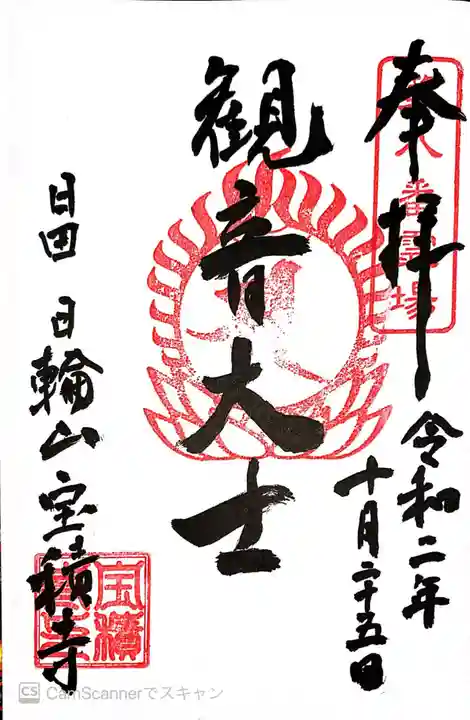 奉拝
八番霊場
令和二年
十月二十五日
観音大士
日田 日輪山宝積寺
宝積
CamScannerでスキャン
CS